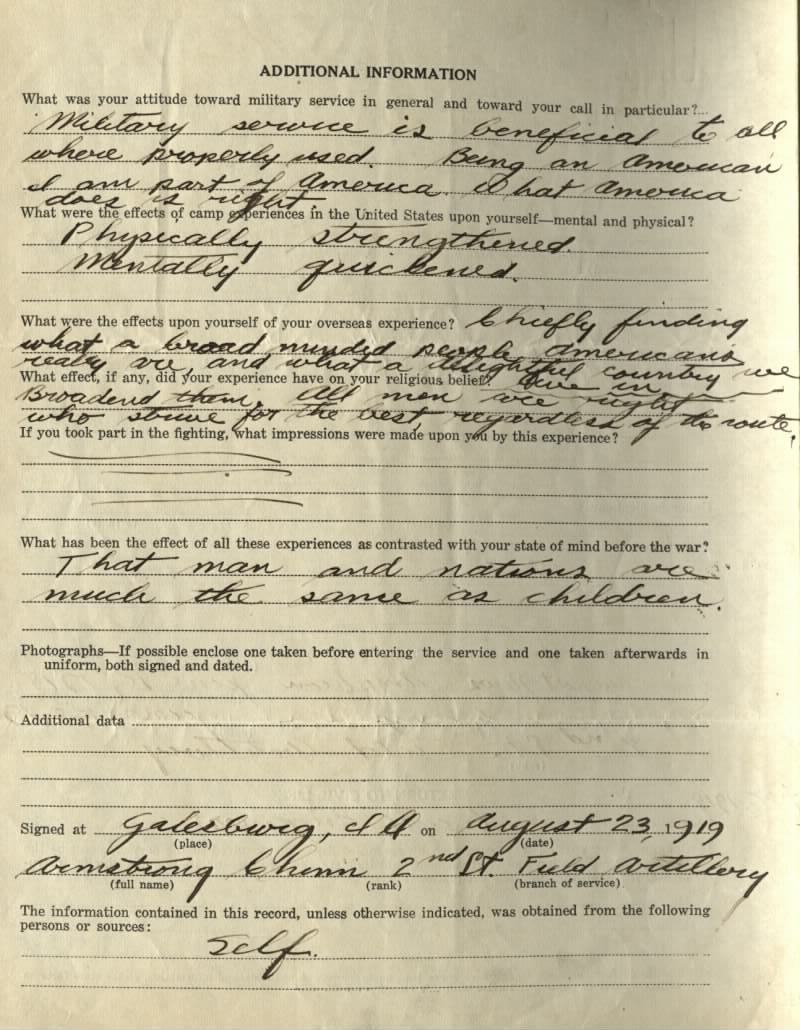 ADDITIONAL INFORMATION
What was your attitude toward military service in general and toward your call in particular?...
Military service is beneficial to all
where properly used. Being an American
I am part of America. What America
does is right.
What were the effects of camp experiences in the United States upon yourself—mental and physical?
Physically strengthened.
Mentally quickened.
What were the effects upon yourself of your overseas experience? Chiefly finding
what a broad minded people Americans
really are, and what a delightful country we
live in
What effect, if any, did your experience have on your religious belief?
Broadend them. All men are right
who strive for the best, regardless of the route.
If you took part in the fighting, what impressions were made upon you by this experience?
What has been the effect of all these experiences as contrasted with your state of mind before the war?
That man and nations are
much the same as children.
Photographs—If possible enclose one taken before entering the service and one taken afterwards in
uniform, both signed and dated.
Additional data
Signed at Galesburg, Ill on August 23, 1919
(place) (date)
Armstrong Chinn 2nd Lt. Field Artillery
(full name) (rank) (branch of service)
The information contained in this record, unless otherwise indicated, was obtained from the following
persons or sources:
Self.